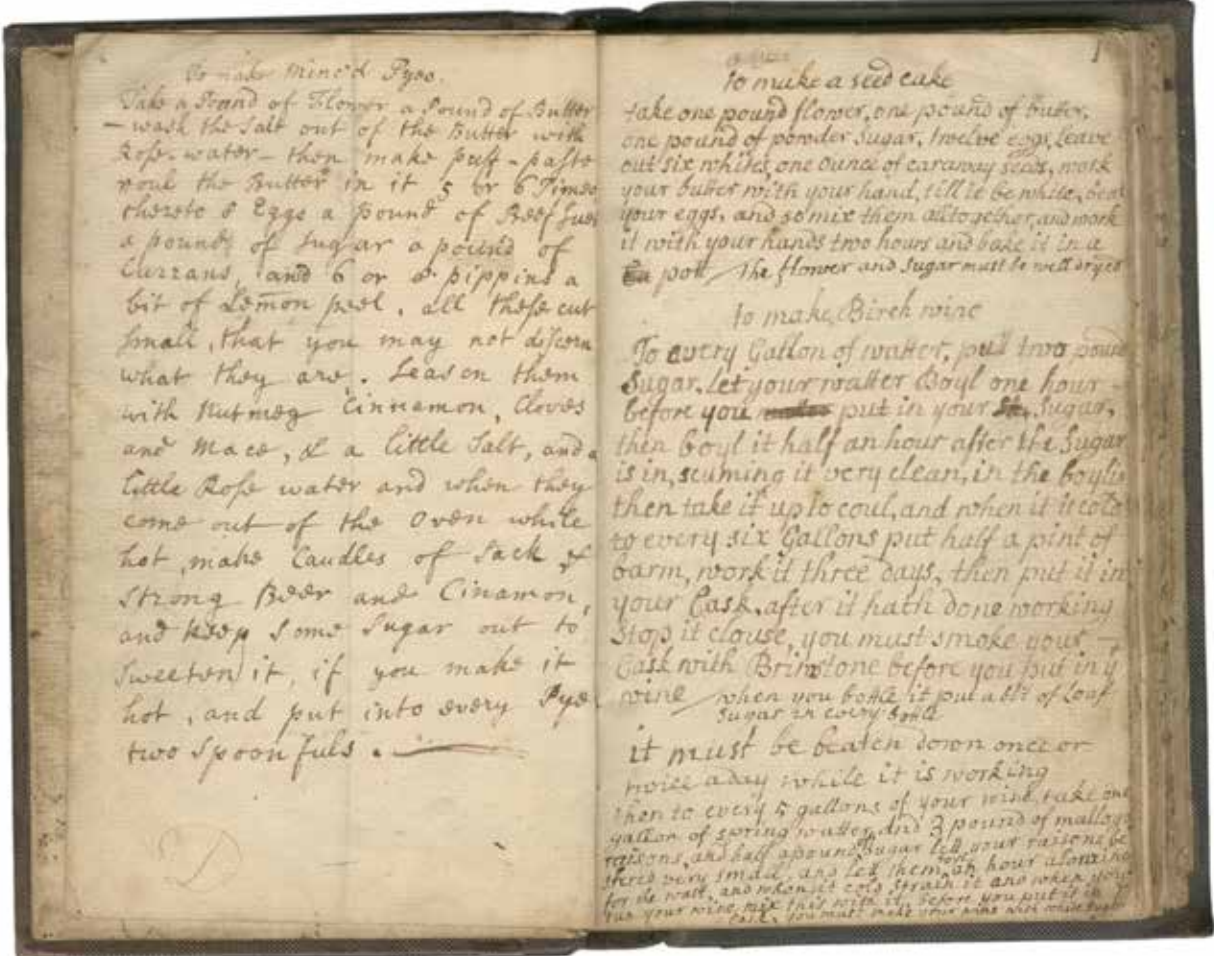 To make Minc'd Pyes.
Take a Pound of Flower a Pound of Butter
– wash the Salt out of the Butter with
Rose-water – then make puff-paste
roul the Butter in it 5 or 6 Times
thereto 8 Eggs a pound of Beef Suet
a pound of Sugar a pound of
Currans, and 6 or 8 pippins a
bit of Lemon peel. all these cut
Small, that you may not discern
what they are. Season them
with Nutmeg Cinnamon, Cloves
and Mace, & a little Salt, and a
little Rose water and when they
come out of the Oven while
hot, make Caudles of Sack &
Strong Beer and Cinamon,
and keep Some Sugar out to
Sweeten it, if you make it
hot, and put into every Pye
two Spoonfuls.
1
to make a seed cake
take one pound flower, one pound of buter,
one pound of powder Sugar, twelve eggs, leave
out six whites, one ounce of caraway seeds, work
your butter with your hand, till it be white, beat
your eggs, and so mix them alltogether, and work
it with your hands two hours and bake it in a
pott the flower and Sugar must be well dryed
to make Birch wine
To every Gallon of watter, putt two pound
Sugar. Let your watter Boyl one hour
before you put in your Sugar,
then boyl it half an hour after the Sugar
is in, scuming it very clean, in the boyli
then take it up to coul, and when it is cold
to every six Gallons put half a pint of
barm, work it three days, then put it in
your Cask, after it hath done working
Stop it clouse, you must smoke your
Cask with Brimstone before you put in yͤ
wine when you bottle it put a bit of Loaf
Sugar in every bottle
it must be beaten down once or
twice a day while it is working
then to every 5 gallons of your wine, take one
gallon of spring watter, and 3 pound of mallaga
raisons, and half a pound Sugar lett your raisons be
shred very small, and let them an hour
for the wast, and when its cold strain it and when you
tun your wine, mix this with it, before you put it in
Cask, you must make your wine with white Sugar